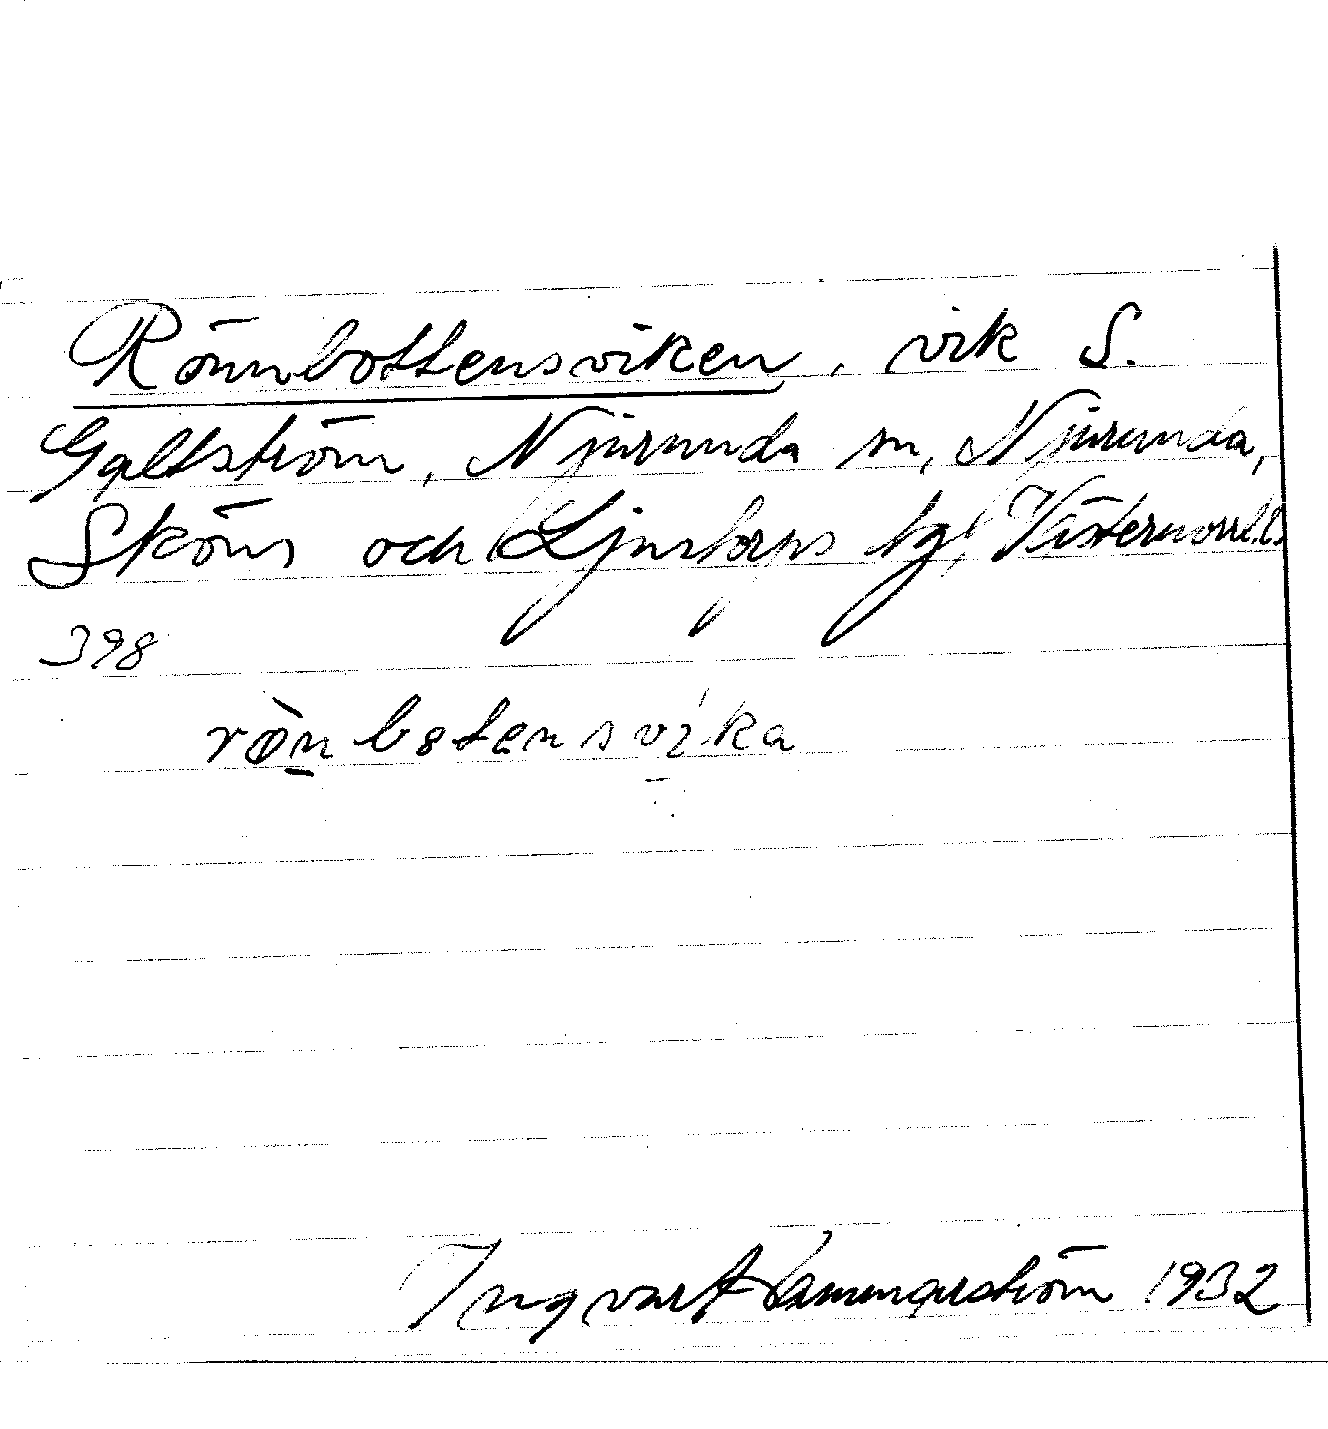 Rönnbottensviken, vik S.
Galtström, Njurunda sn, Njurunda,
Sköns och Ljustorps tg, Västernorrl. l.
398
rönbotensvika
Ingvar Hammarström 1932